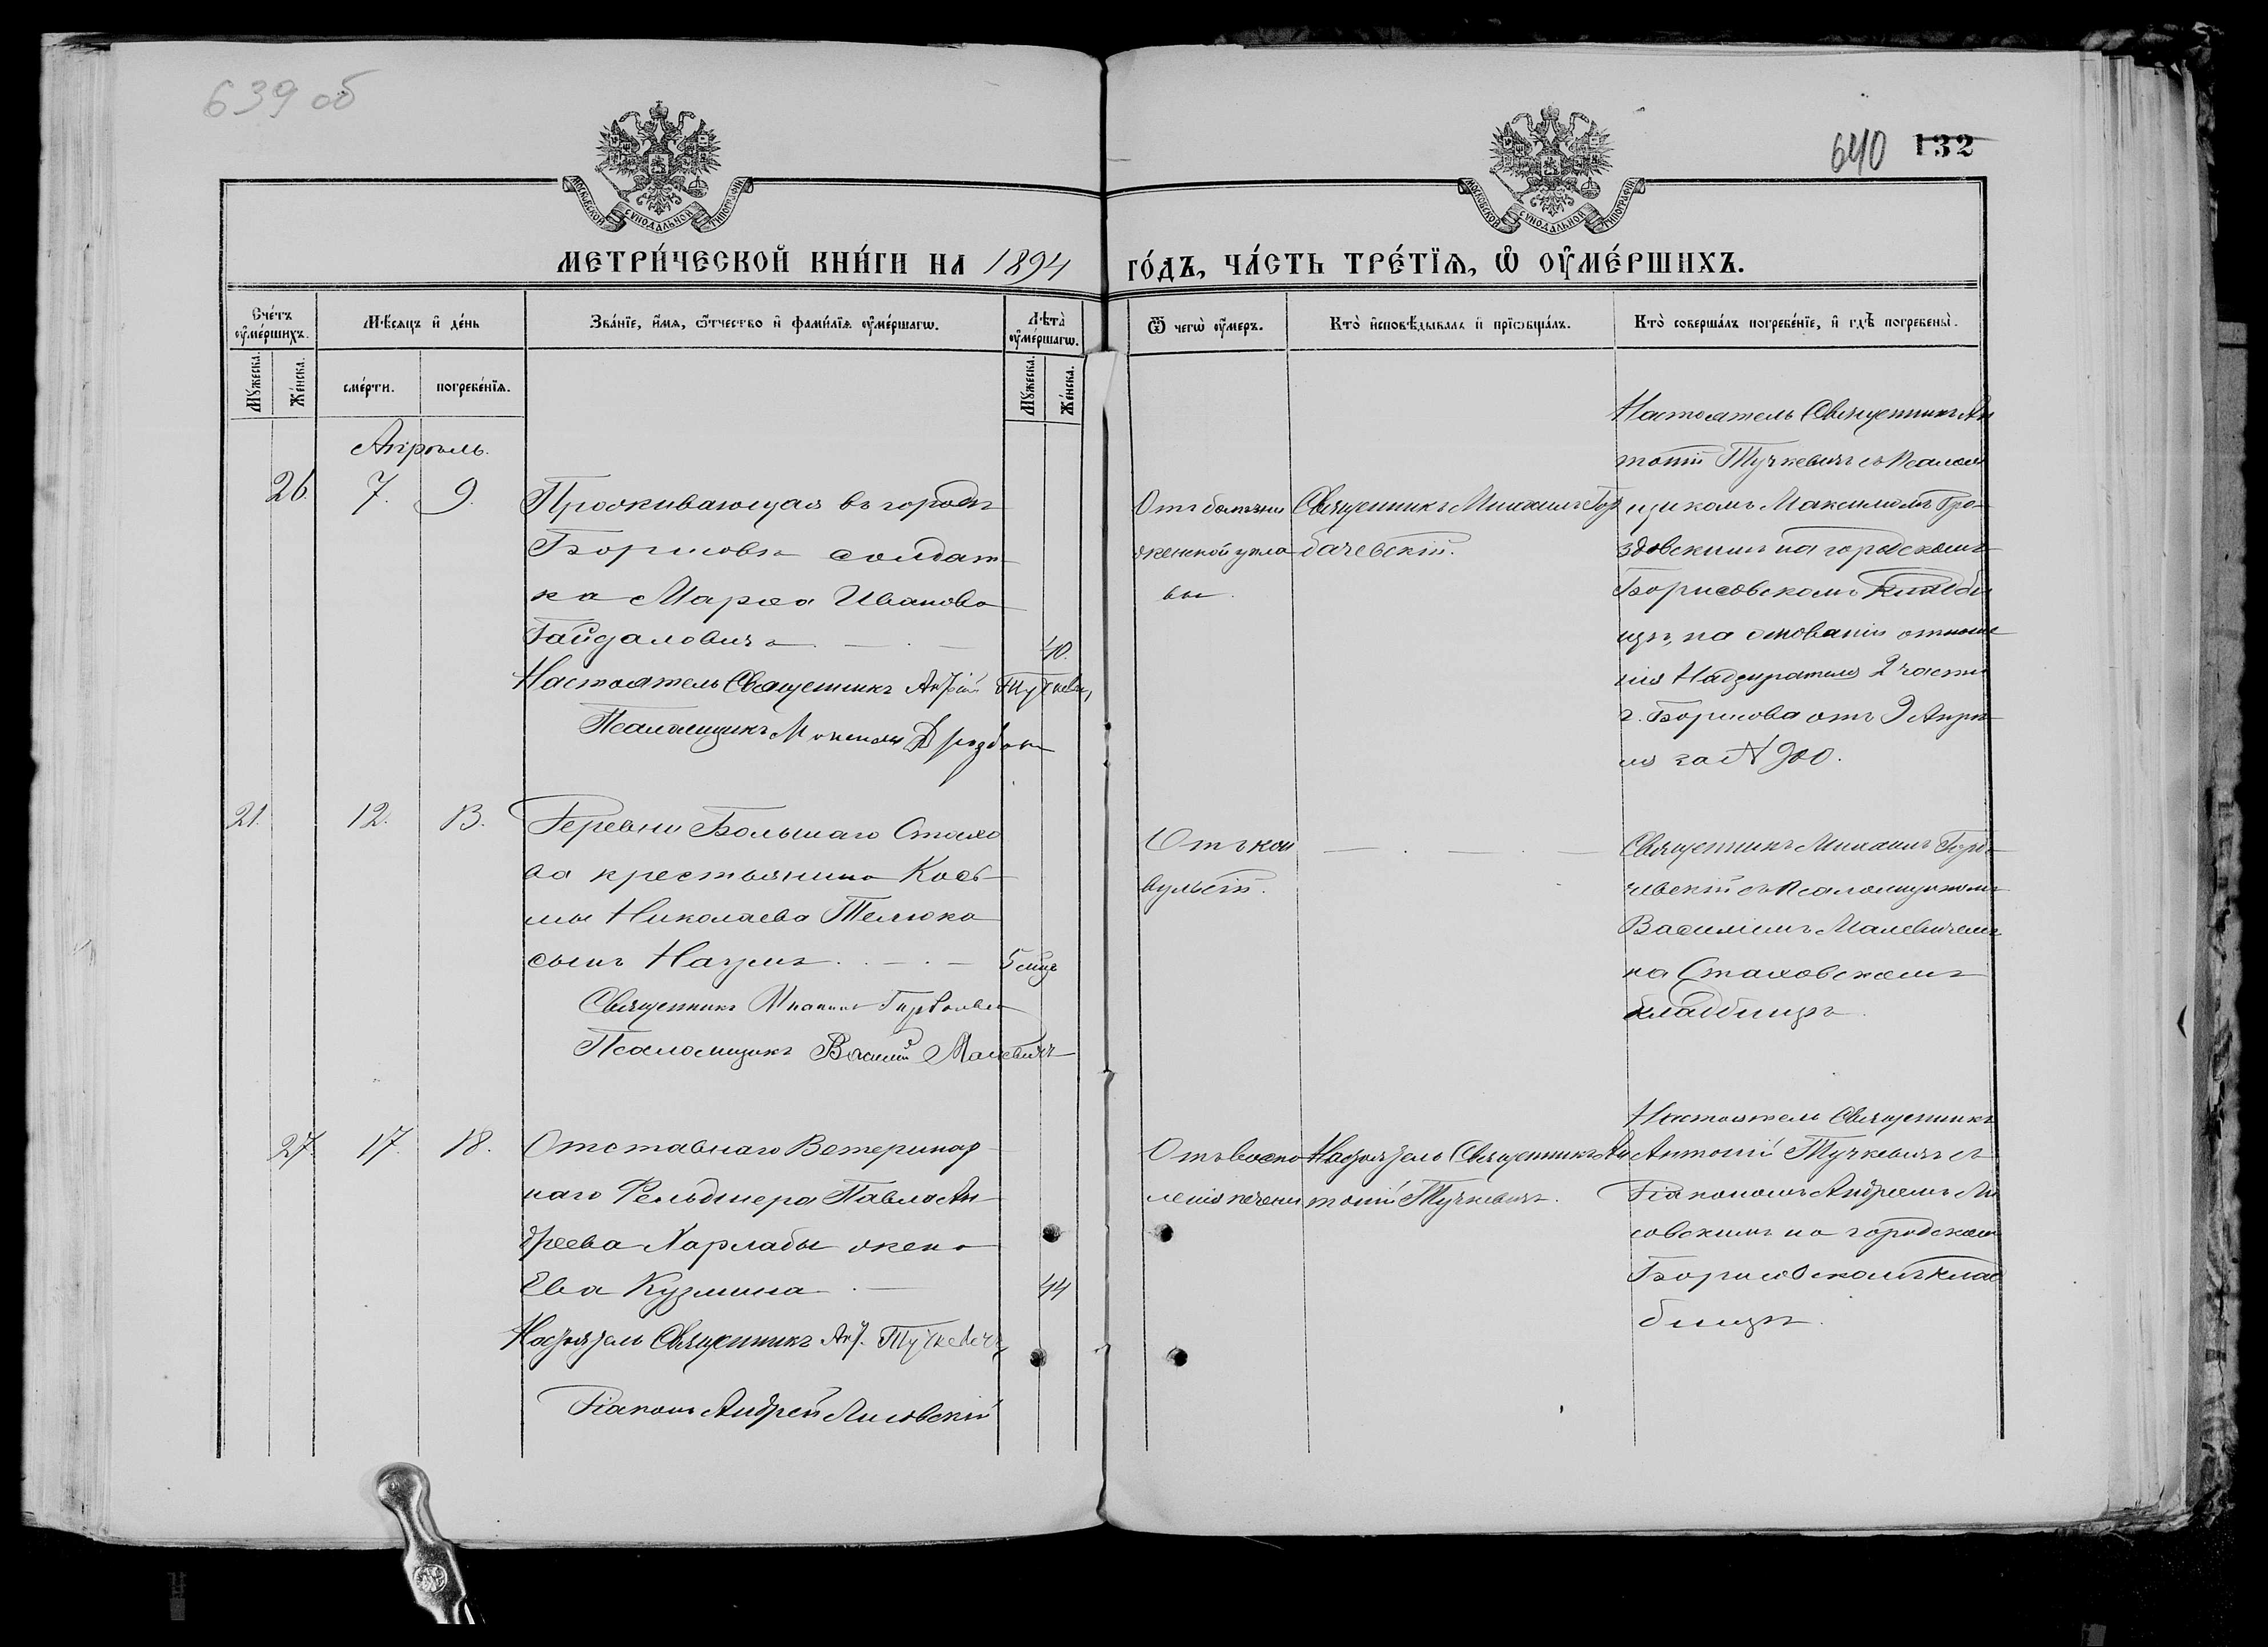 639 об
640 132
МОСКОВСКОЙ СѴНОДАЛЬНОЙ ТИПОГРАФІИ
МОСКОВСКОЙ СѴНОДАЛЬНОЙ ТИПОГРАФІИ
МЕТРИ́ЧЕСКОЙ КНИ́ГИ НА 1894 ГО́ДЪ, ЧА́СТЬ ТРЕ́ТІѦ, Ѡ҆ ОУ҆МЕ́РШИХЪ.
Сче́тъ оу҆ме́ршихъ.
Мꙋ́жеска.
Же́нска.
Мѣ́сяцъ и҆ де́нь
сме́рти.
погребе́нїѧ.
Зва́нїе, и҆́мѧ, ѻ҆́тчество и҆ фами́лїѧ оу҆ме́ршагѡ.
Лѣта̀ оу҆ме́ршагѡ.
Мꙋ́жеска.
Же́нска.
Ѿ чегѡ̀ оу҆́меръ.
Кто̀ и҆сповѣ́дывалъ и҆ прїѡбща́лъ.
Кто̀ соверша́лъ погребе́нїе, и҆ гдѣ̀ погребены̀.
Апрѣль.
26. 7. 9.
Проживающая въ городѣ
Борисовѣ солдат
ка Марѳа Иванова
Гайдаловичъ
40.
Настоятель Священникъ Антоній Тучкевичъ
Псаломщикъ Максимъ Дроздовск
Отъ болѣзни
женской голо
вы
Священникъ Михаилъ Гор
бачевскій.
Настоятель Священникъ Ан
тоній Тучкевичъ съ Псалом
щикомъ Максимомъ Дро
здовскимъ на городскомъ
Борисовскомъ Кладби
щѣ, на основаніи отноше
нія Надзирателя 2 части
г. Борисова отъ 9 Апрѣ
ля за № 900.
21. 12. 13.
Деревни Большаго Стахо
ва крестьянина Кось
мы Николаева Телюка
сынъ Наумъ
5 мцъ
Священникъ Михаилъ Горбачевск
Псаломщикъ Василій Малевичъ
Отъ кон
вульсій.
Священникъ Михаилъ Горба
чевскій съ Псаломщикомъ
Василіемъ Малевичемъ
на Стаховскомъ
кладбищѣ.
27. 17. 18.
Отставнаго Ветеринар
наго Фельдшера Павла Ан
дреева Харлабы жена
Ева Кузмина
44
Настоятель Священникъ Ант. Тучкевичъ
Діаконъ Андрей Лисовскій
Отъ воспа
ленія печени
Настоятель Священникъ Ан
тоній Тучкевичъ.
Настоятель Священникъ
Антоній Тучкевичъ съ
Діакономъ Андреемъ Ли
совскимъ на городскомъ
Борисовскомъ клад
бищѣ.